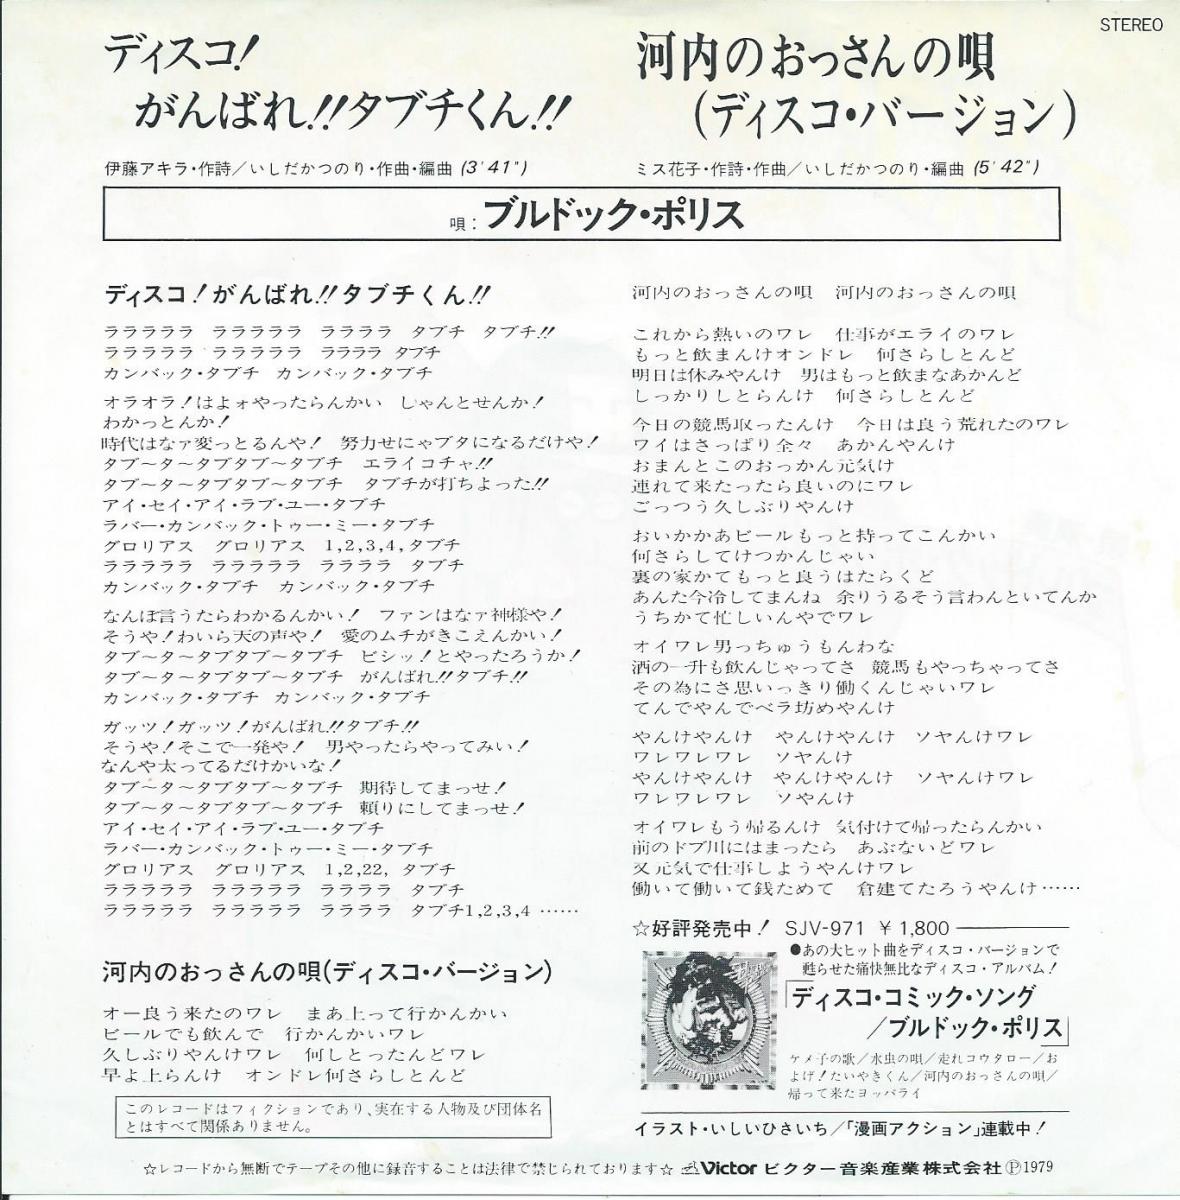 STEREO
ディスコ!
がんばれ!!タブチくん!!
伊藤アキラ・作詩/いしだかつのり・作曲・編曲 (3'41")
河内のおっさんの唄
(ディスコ・バージョン)
ミス花子・作詩・作曲/いしだかつのり・編曲 (5'42")
唄:ブルドック・ポリス
ディスコ!がんばれ!!タブチくん!!
ラララララ ラララララ ララララ タブチ タブチ!!
ラララララ ラララララ ララララ タブチ
カンバック・タブチ カンバック・タブチ
オラオラ!はよォやったらんかい しゃんとせんか!
わかっとんか!
時代はなァ変っとるんや! 努力せにゃブタになるだけや!
タブ〜タ〜タブタブ〜タブチ エライコチャ!!
タブ〜タ〜タブタブ〜タブチ タブチが打ちよった!!
アイ・セイ・アイ・ラブ・ユー・タブチ
ラバー・カンバック・トゥー・ミー・タブチ
グロリアス グロリアス 1,2,3,4,タブチ
ラララララ ラララララ ララララ タブチ
カンバック・タブチ カンバック・タブチ
なんぼ言うたらわかるんかい! ファンはなァ神様や!
そうや!わいら天の声や! 愛のムチがきこえんかい!
タブ〜タ〜タブタブ〜タブチ ビシッ!とやったろうか!
タブ〜タ〜タブタブ〜タブチ がんばれ!!タブチ!!
カンバック・タブチ カンバック・タブチ
ガッツ!ガッツ!がんばれ!!タブチ!!
そうや!そこで一発や! 男やったらやってみい!
なんや太ってるだけかいな!
タブ〜タ〜タブタブ〜タブチ 期待してまっせ!
タブ〜タ〜タブタブ〜タブチ 頼りにしてまっせ!
アイ・セイ・アイ・ラブ・ユー・タブチ
ラバー・カンバック・トゥー・ミー・タブチ
グロリアス グロリアス 1,2,22, タブチ
ラララララ ラララララ ララララ タブチ
ラララララ ラララララ ララララ タブチ1,2,3,4 ……
河内のおっさんの唄(ディスコ・バージョン)
オー良う来たのワレ まあ上って行かんかい
ビールでも飲んで 行かんかいワレ
久しぶりやんけワレ 何しとったんどワレ
早よ上らんけ オンドレ何さらしとんど
このレコードはフィクションであり、実在する人物及び団体名
とはすべて関係ありません。
河内のおっさんの唄 河内のおっさんの唄
これから熱いのワレ 仕事がエライのワレ
もっと飲まんけオンドレ 何さらしとんど
明日は休みやんけ 男はもっと飲まなあかんど
しっかりしとらんけ 何さらしとんど
今日の競馬取ったんけ 今日は良う荒れたのワレ
ワイはさっぱり全々 あかんやんけ
おまんとこのおっかん元気け
連れて来たったら良いのにワレ
ごっつう久しぶりやんけ
おいかかあビールもっと持ってこんかい
何さらしてけつかんじゃい
裏の家かてもっと良うはたらくど
あんた今冷してまんね 余りうるそう言わんといてんか
うちかて忙しいんやでワレ
オイワレ男っちゅうもんわな
酒の一升も飲んじゃってさ 競馬もやっちゃってさ
その為にさ思いっきり働くんじゃいワレ
てんでやんでベラ坊めやんけ
やんけやんけ やんけやんけ ソヤんけワレ
ワレワレワレ ソヤんけ
やんけやんけ やんけやんけ ソヤんけワレ
ワレワレワレ ソやんけ
オイワレもう帰るんけ 気付けて帰ったらんかい
前のドブ川にはまったら あぶないどワレ
又元気で仕事しようやんけワレ
働いて働いて銭ためて 倉建てたろうやんけ……
☆好評発売中! SJV-971 ¥1,800
●あの大ヒット曲をディスコ・バージョンで
甦らせた痛快無比なディスコ・アルバム!
「ディスコ・コミック・ソング
/ブルドック・ポリス」
ケメ子の歌/水虫の唄/走れコウタロー/お
よげ!たいやきくん/河内のおっさんの唄/
帰って来たヨッパライ
イラスト・いしいひさいち/「漫画アクション」連載中!
☆レコードから無断でテープその他に録音することは法律で禁じられております☆ Victor ビクター音楽産業株式会社 Ⓟ1979